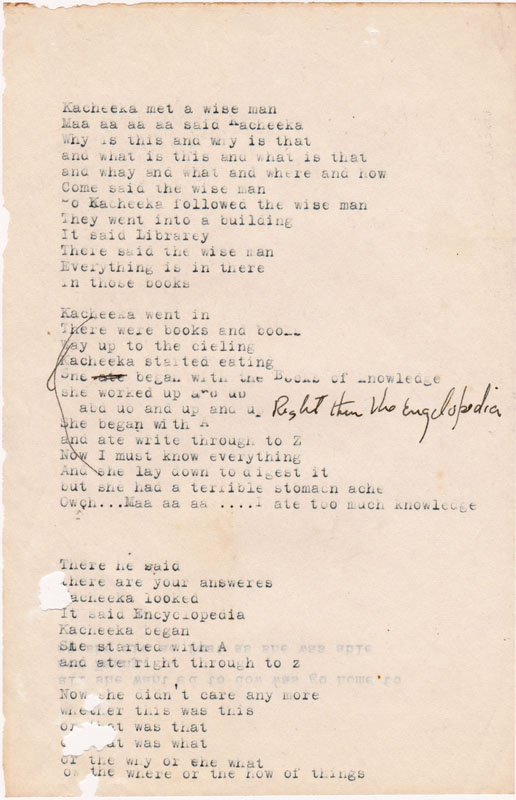 Kacheeka met a wise man
Maa aa aa aa said Kacheeka
Why is this and why is that
and what is this and what is that
and whay and what and where and how
Come said the wise man
So Kacheeka followed the wise man
They went into a building
It said Librarey
There said the wise man
Everything is in there
in those books
Kacheeka went in
There were books and books
Way up to the cieling
Kacheeka started eating
One ate began with the Books of Knowledge
she worked up and up
abd uo and up and up Right thru the Engclopedia
She began with A
and ate write through to Z
Now I must know everything
And she lay down to digest it
but she had a terrible stomach ache
Owch...Maa aa aa ....I ate too much knowledge
There he said
there are your answeres
Kacheeka looked
It said Encyclopedia
Kacheeka began
She started with A
and ate right through to z
Now she didn't care any more
whether this was this
or that was that
or what was what
or the why or ehe what
or the where or the how of things